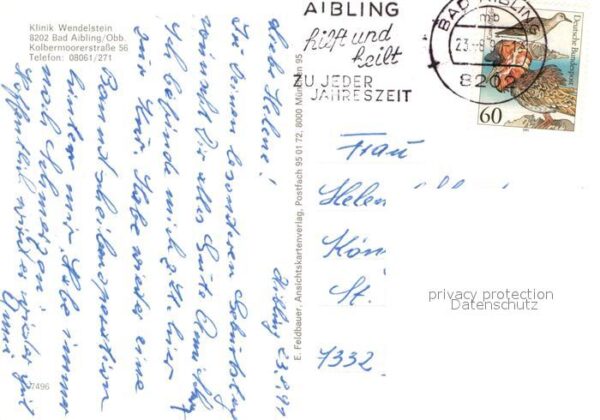 Klinik Wendelstein
8202 Bad Aibling/Obb.
Kolbermoorerstraße 56
Telefon: 08061/271
AIBLING
hilft und
heilt
ZU JEDER
JAHRESZEIT
BAD AIBLING
mb
23.-8.
8202
Deutsche Bundespost
60
Aibling 23.8.91
Liebe Helene!
Zu Deinem besonderen Geburtstag
wünscht Dir alles Gute
Ich befinde mich z. Zt. hier
zur Kur. Habe wieder eine
Bandscheibenoperation
hinter mir. Habe immer
noch Schmerzen
Hoffentlich wird es wieder gut
Frau
Helen
Kön
St.
7332
E. Feldbauer, Ansichtskartenverlag, Postfach 95 01 72, 8000 München 95
7496
privacy protection
Datenschutz